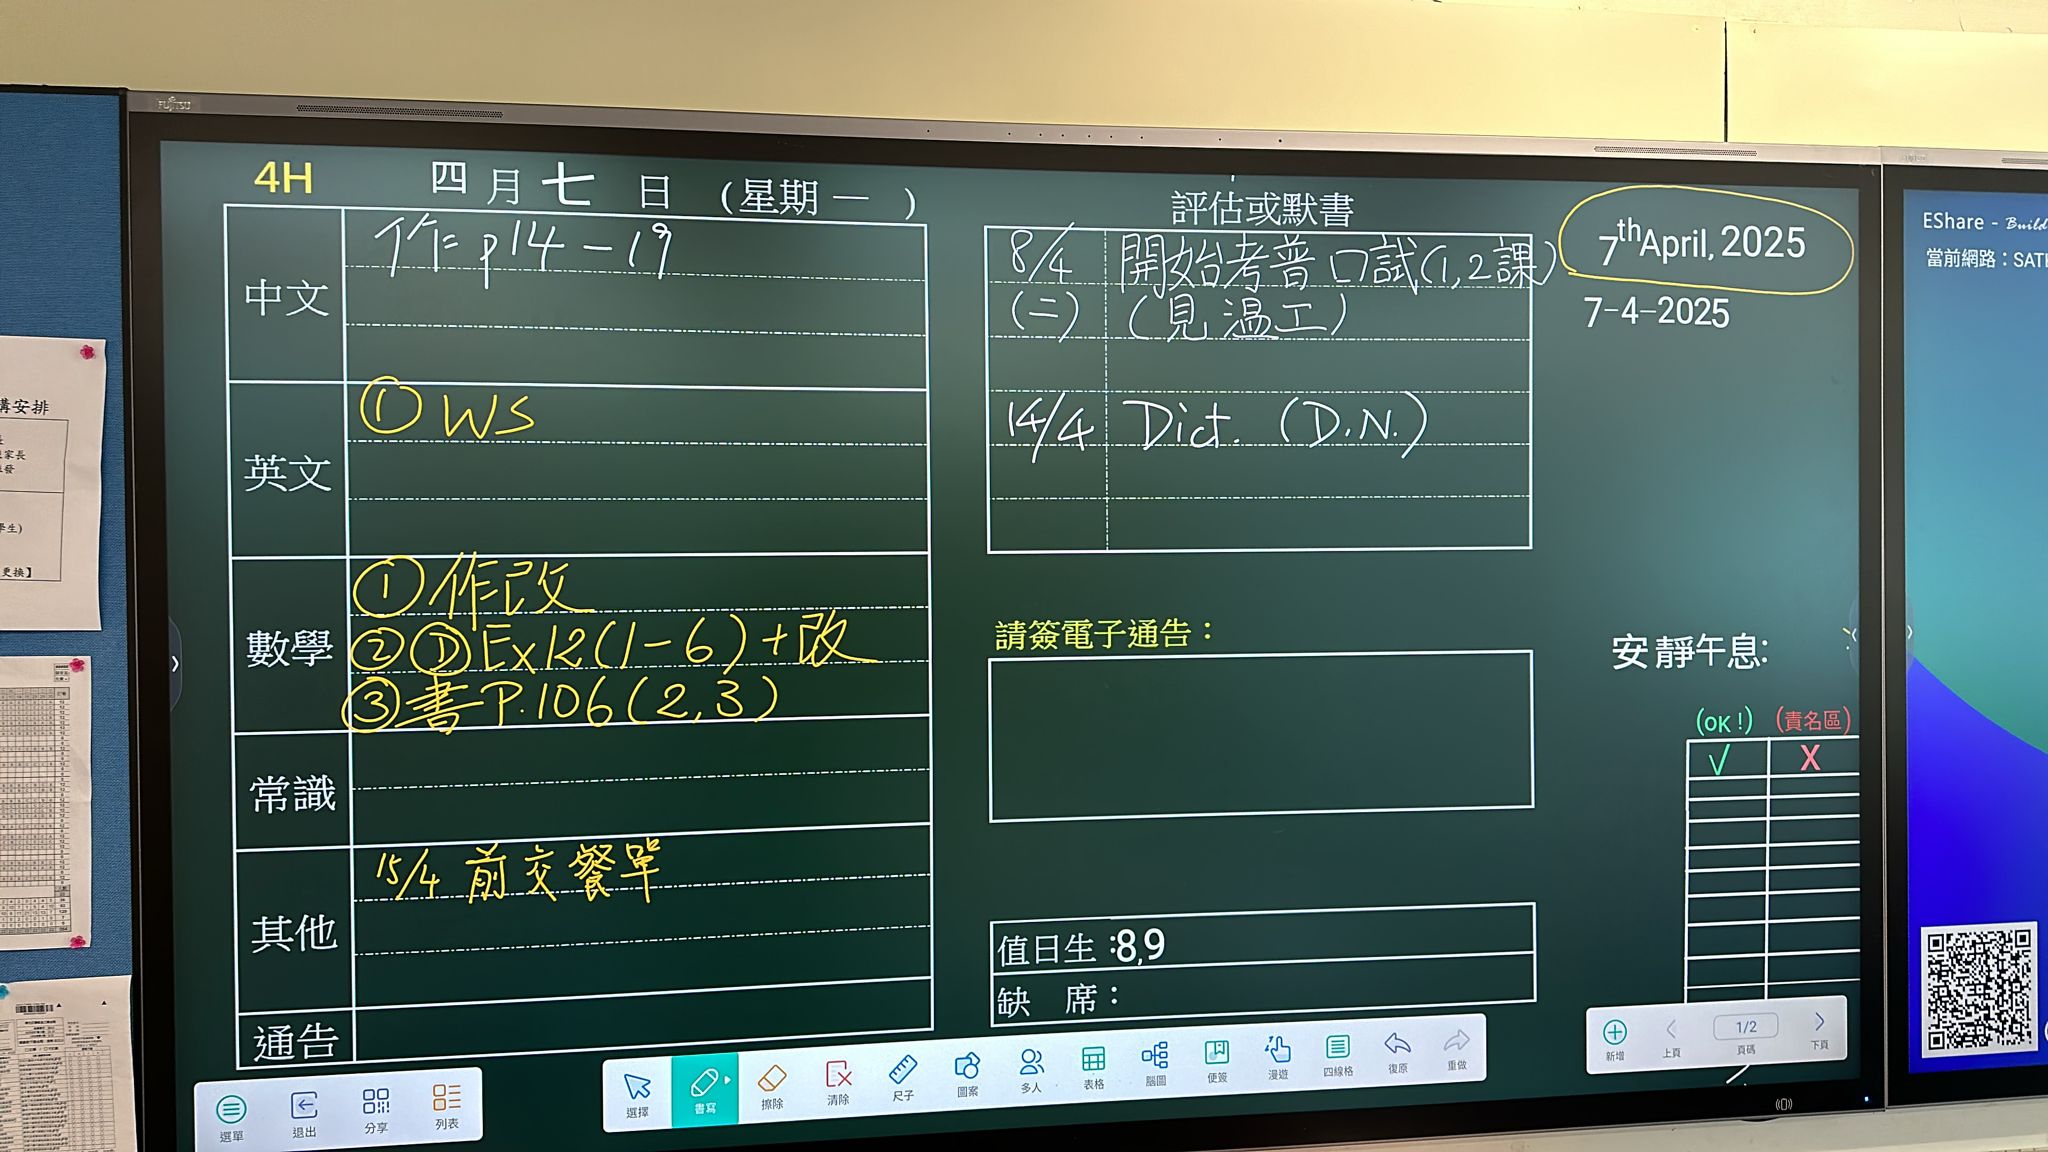 FUJITSU
4H 四月七日（星期一）
中文
作=p14-19
英文
① WS
數學
①作改
②Ⓓ Ex12(1-6)+改
③書P.106(2,3)
常識
其他
15/4 前交餐單
通告
評估或默書
8/4 開始考普口試(1,2課)
(二) (見温工)
14/4 Dict. (D.N.)
請簽電子通告：
值日生：8,9
缺 席：
7th April, 2025
7-4-2025
安靜午息:
(OK!) (責名區)
√ X
選單 退出 分享 列表
選擇 書寫 擦除 清除 尺子 圖案 多人 表格 腦圖 便簽 漫遊 四線格 復原 重做
新增 上頁 1/2 頁碼 下頁
EShare - Build
當前網路：SAT
安排
家長
發
學生)
更換】